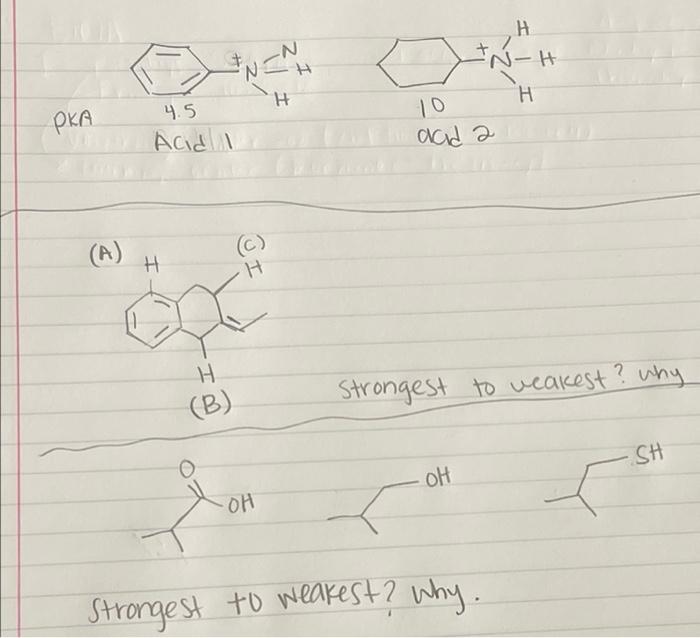 +N-N
-H
H
H
+N-H
H
PKA 4.5 10
Acid 1 acid 2
(A) H (C)
H
H
(B)
Strongest to weakest? why
O
OH
OH
SH
Strongest to weakest? Why.